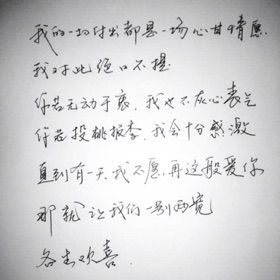 我的一切付出都是一场心甘情愿
我对此绝口不提
你若无动于衷、我也不灰心丧气
你若投桃报李、我会十分感激
直到有一天、我不愿再这般爱你
那就让我们一别两宽
各生欢喜.